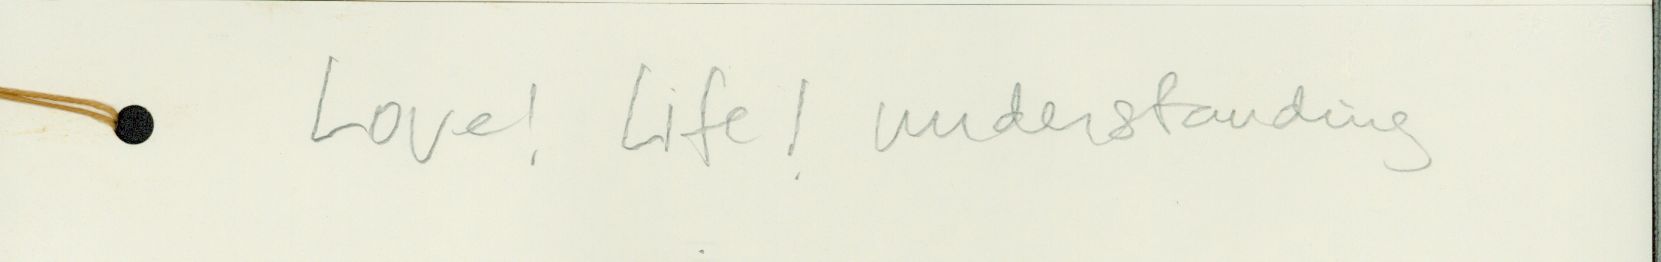 Love! Life! understanding